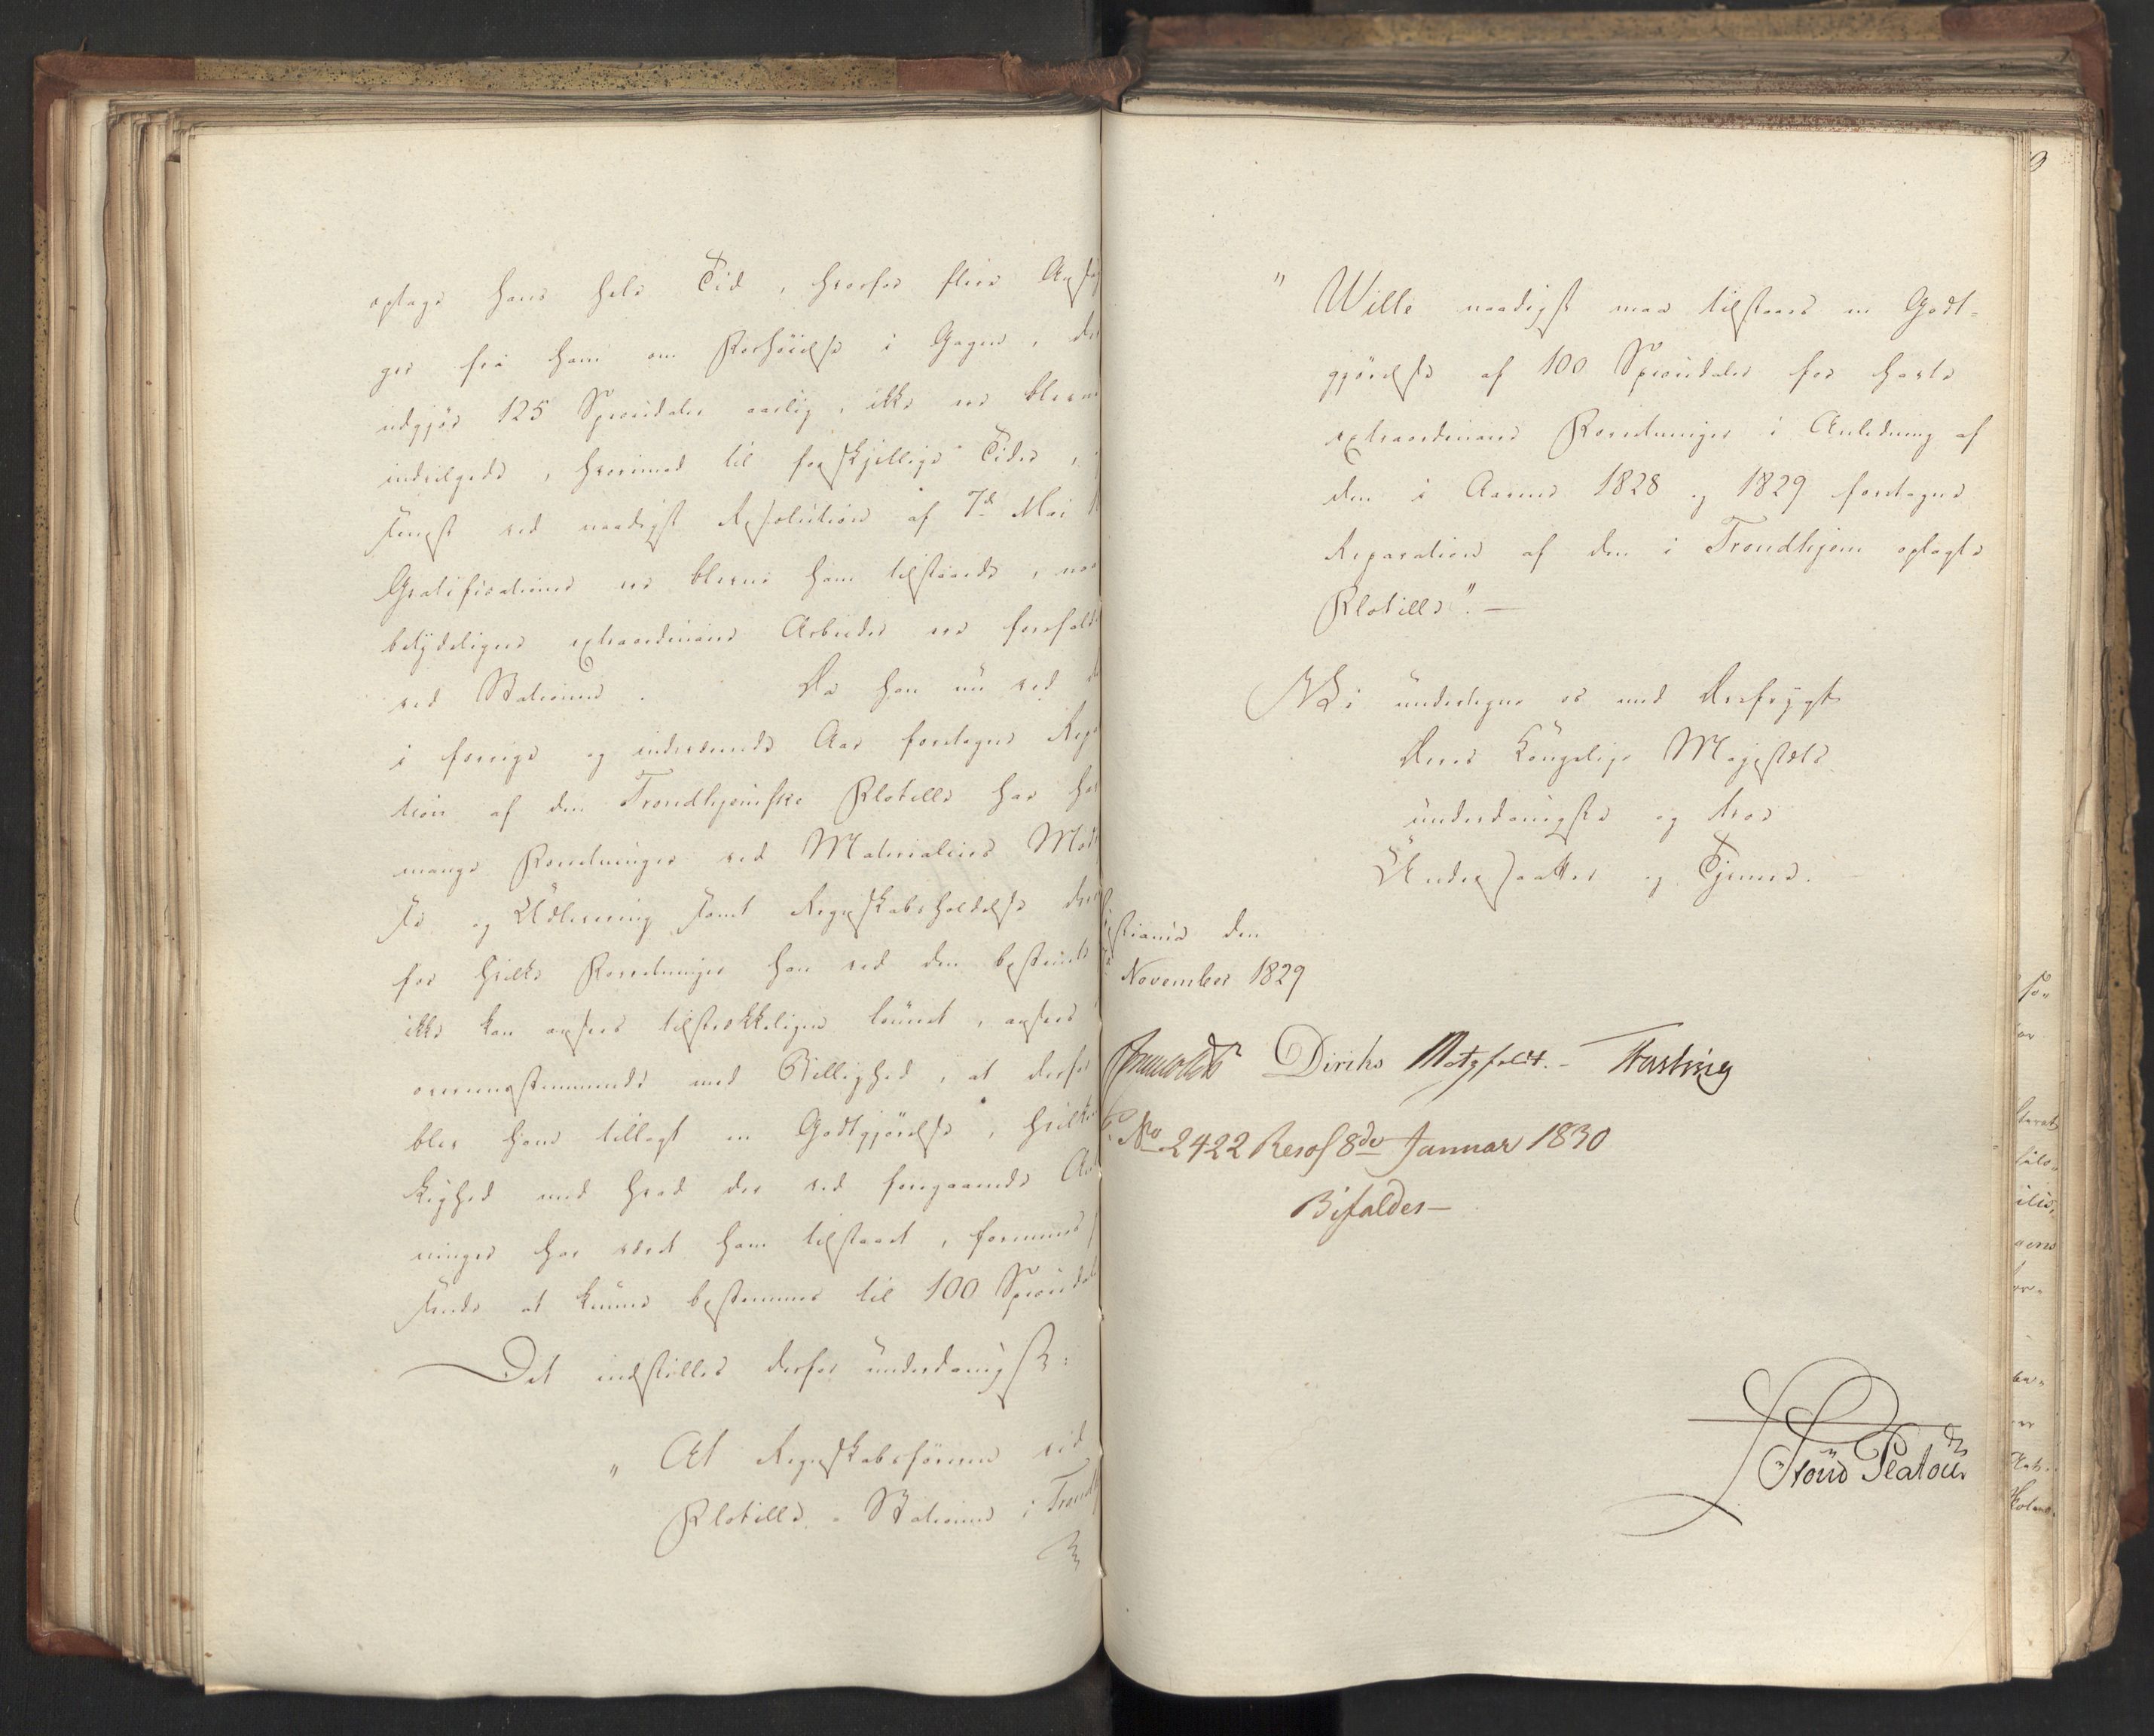 optage hans hele Tid, hvorfor flere Ansøg
ger fra ham om Forhöielse i Gagen, der
udgjör 125 Speciedaler aarlig, ikke ere blevne
indvilgede, hvorimod til forskjellige Tider,
senest ved naadigst Resolution af 7de Mai
Gratificationer ere blevne ham tilstaaede, naar
betydeligere extraordinaire Arbeider ere forefaldne
ved Stationen. Da han nu ved d
i forrige og indeværende Aar foretagne Repa
tion af den Trondhjemske Flotille har hav
mange Forretninger ved Materialiers Mod
se og Udlevering samt Regnskabsholdelse der
for hvilke Forretninger han ved den bestemte
ikke kan ansees tilstrækkeligen lönnet, ansees
overeensstemmende med Billighed, at derfor
blev ham tillagt en Godtgjörelse, hvilken
lighed med hvad der ved foregaaende An
ninger har været ham tilstaaet, formenes
sende at kunne bestemmes til 100 Speciedal
Det indstilles derfor underdanigst:
" At Regnskabsföreren ved
Flotille-Stationen i Trondhj
" Wille naadigst maa tilstaaes en Godt-
gjörelse af 100 Speciedaler for havte
extraordinaire Forretninger i Anledning af
den i Aarene 1828 og 1829 foretagne
Reparation af den i Trondhjem oplagte
Flotille". —
Vi undertegne os med Ærefrygt
Deres Kongelige Majestæts
underdanigste og troe
Undersaatter og Tjenere.
istiania den
November 1829
Diriks Motzfeldt. - Fasting
No 2422 Resol 8de Januar 1830
Bifaldes —
Stoud Platou